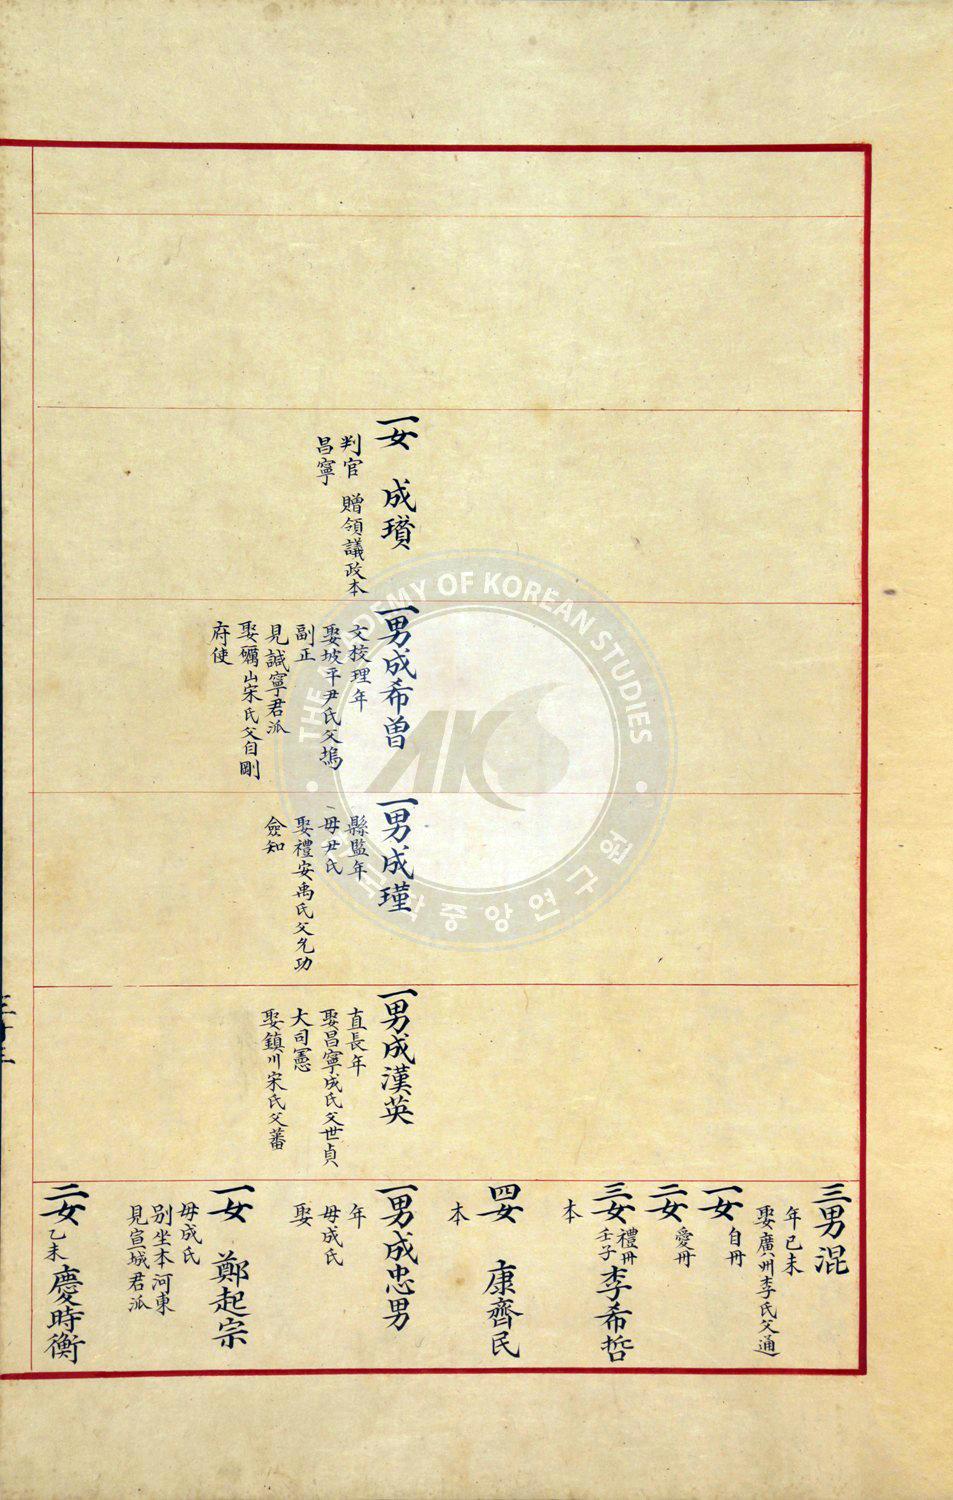 一女 成瓚
判官 贈領議政本
昌寧
一男成希曽
文校理年
娶坡平尹氏父塢
副正
見諴寧君派
娶礪山宋氏父自剛
府使
一男成瑾
縣監年
母尹氏
娶禮安禹氏父允功
僉知
一男成漢英
直長年
娶昌寧成氏父世貞
大司憲
娶鎮川宋氏父蕃
三男混
年己未
娶廣州李氏父通
一女
自冊
二女
愛冊
三女 李希哲
禮冊
壬子
本
四女 康齊民
本
一男成忠男
年
母成氏
娶
一女 鄭起宗
母成氏
別坐本河東
見宣城君派
二女 乙未 慶時衡
THE ACADEMY OF KOREAN STUDIES
AKS
한국학중앙연구원